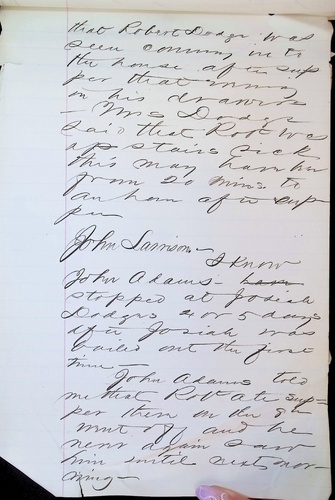 that Robert Dodge was
seen comming in to
the house after sup
per that evening
on his drawers
- Mrs Dodge
said that Robt was
up stairs sick
this may have been
from 20 mins to
an hour after sup
per
John Larrison -
I know
John Adams -
stopped at Josiah
Dodges 4 or 5 days
after Josiah was
bailed out the first
time -
John Adams told
me that Robt ate sup-
per then on the 9th
went off and he
never again saw
him until next mor-
ning -